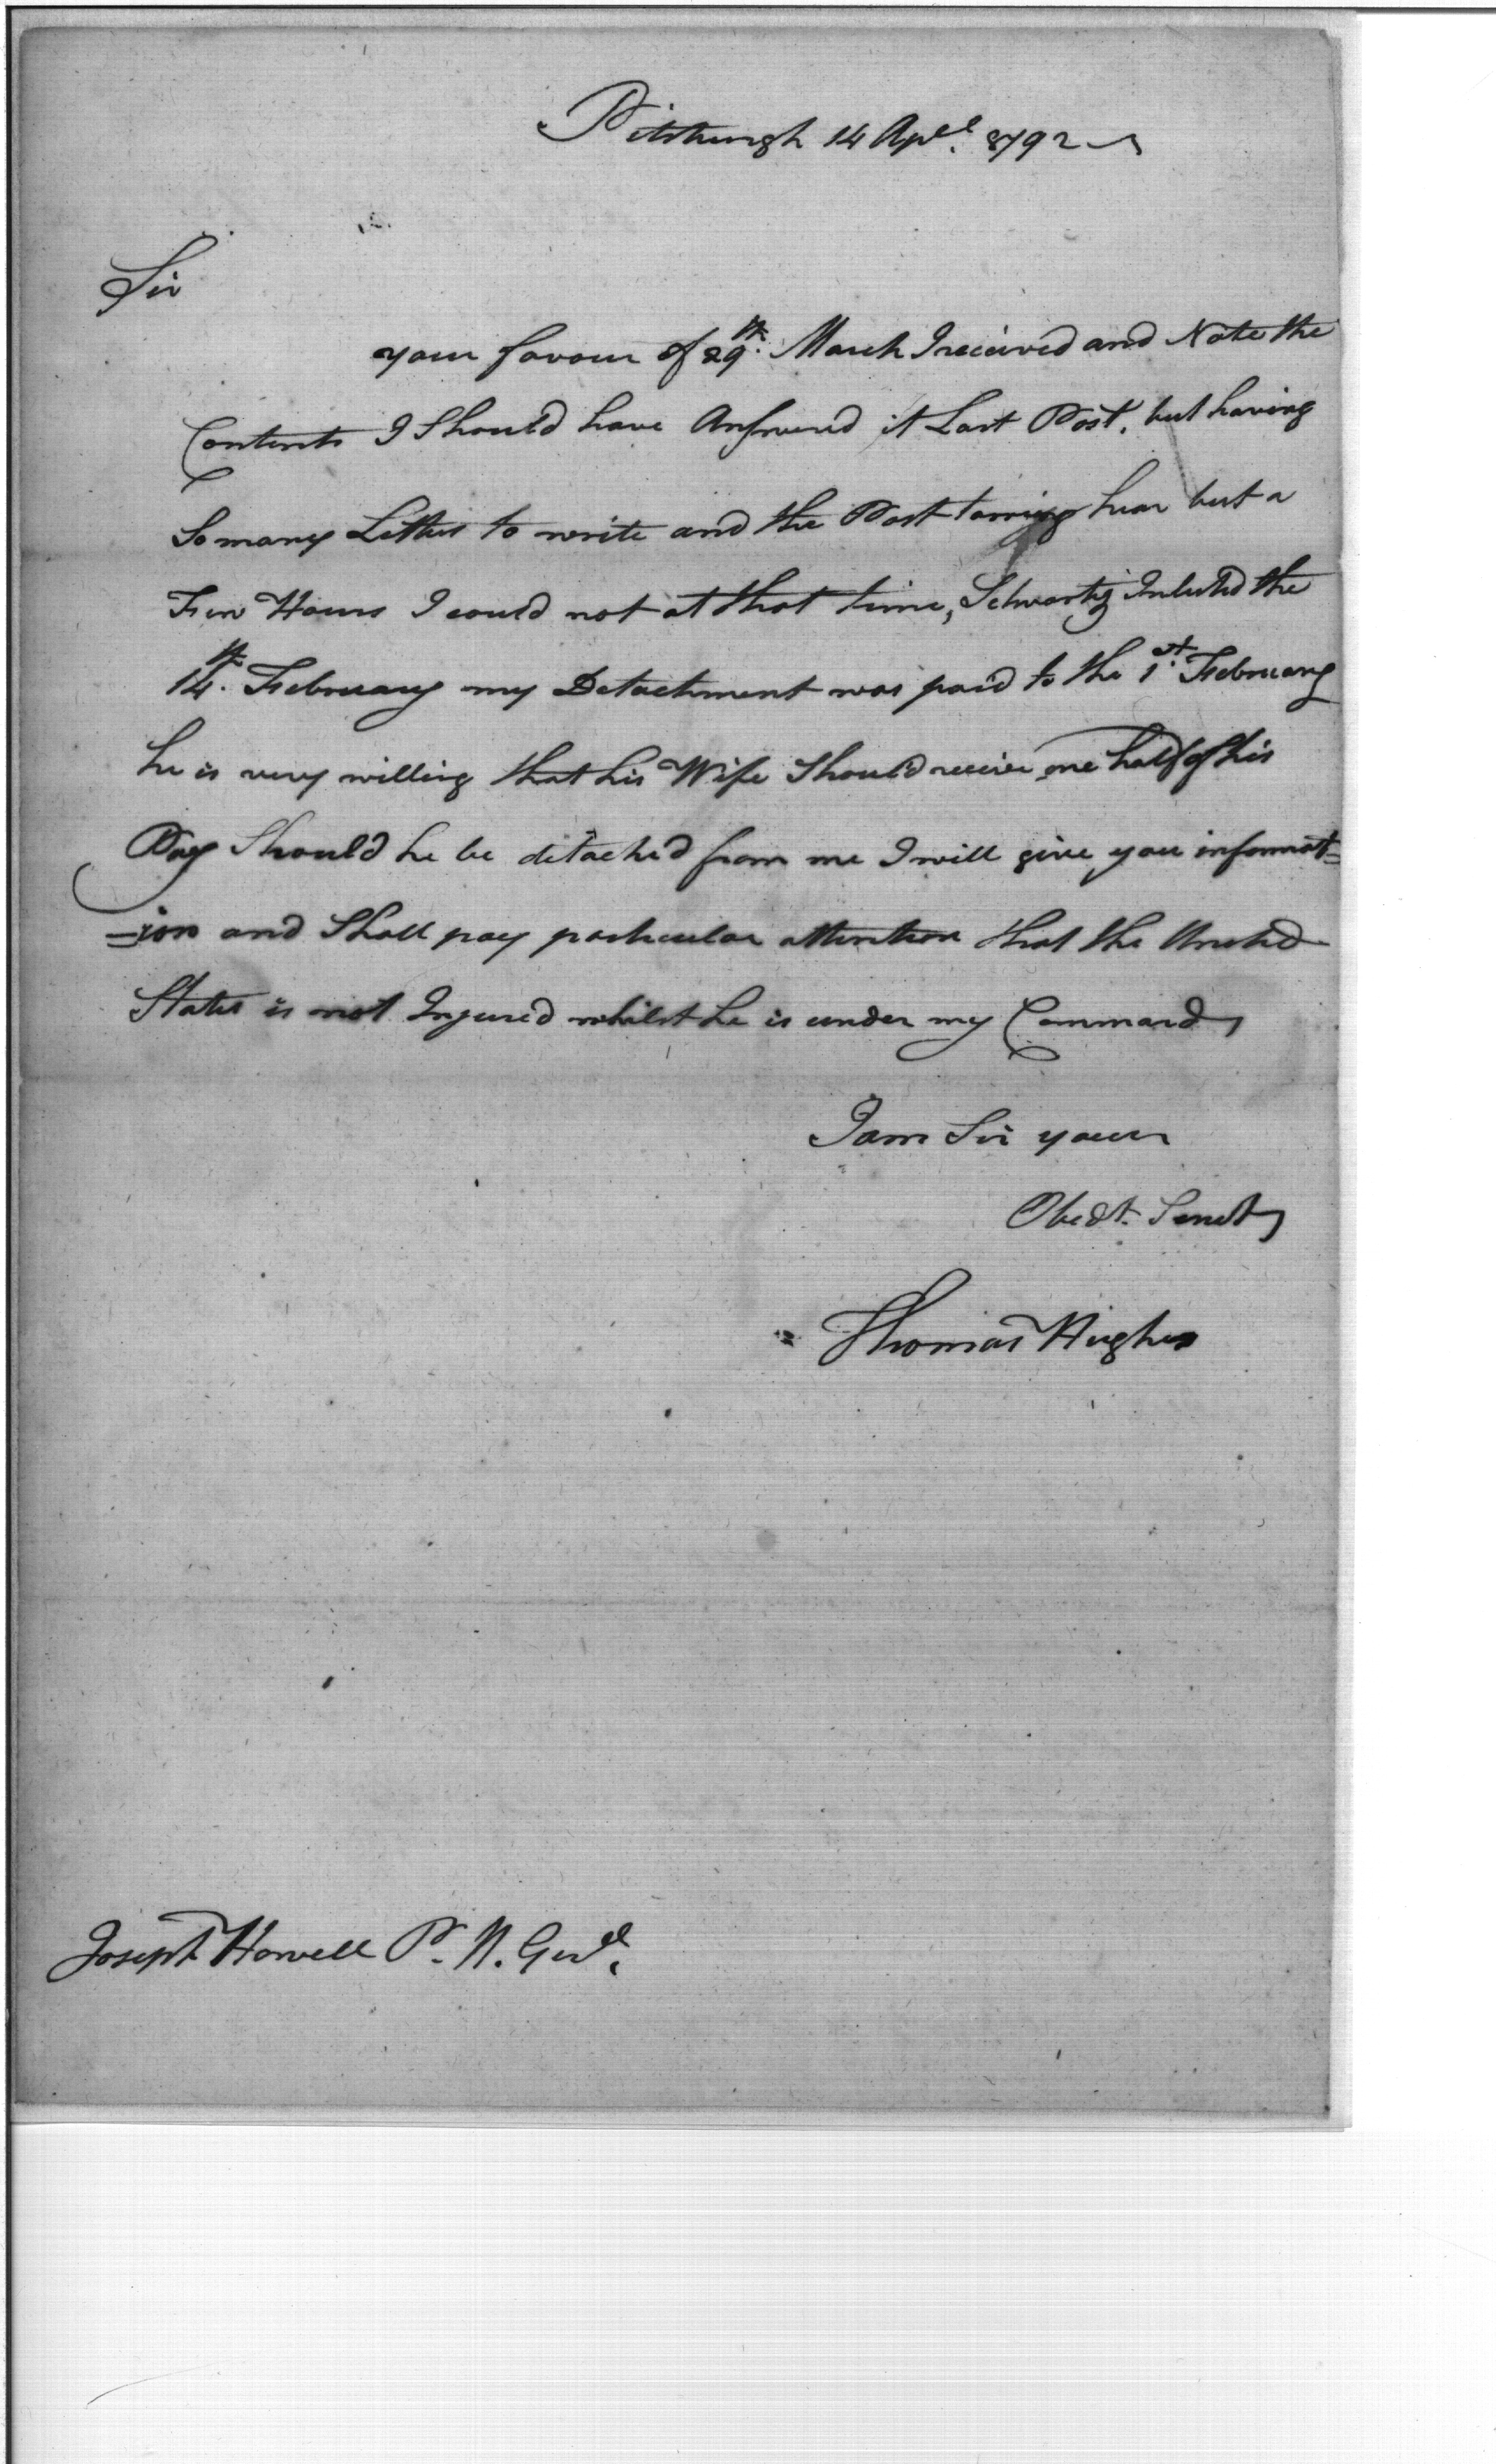 Pittsburgh 14 Apll. 1792
Sir
your favour of 29th. March I received and Note the
Contents I Should have Answered it Last Post, but having
So many Letters to write and the Post tarrying hear but a
Few Hours I could not at that time, Schwartz Inlisted the
14th. February my Detachment was paid to the 1st. February
he is very willing that his Wife Should receive one half of his
Pay Should he be detached from me I will give you informat=
=ion and Shall pay particular attention that the United
States is not Injured whilst he is under my Command
I am Sir your
Obedt. Servt
Thomas Hughes
Joseph Howell P. M. Genl.